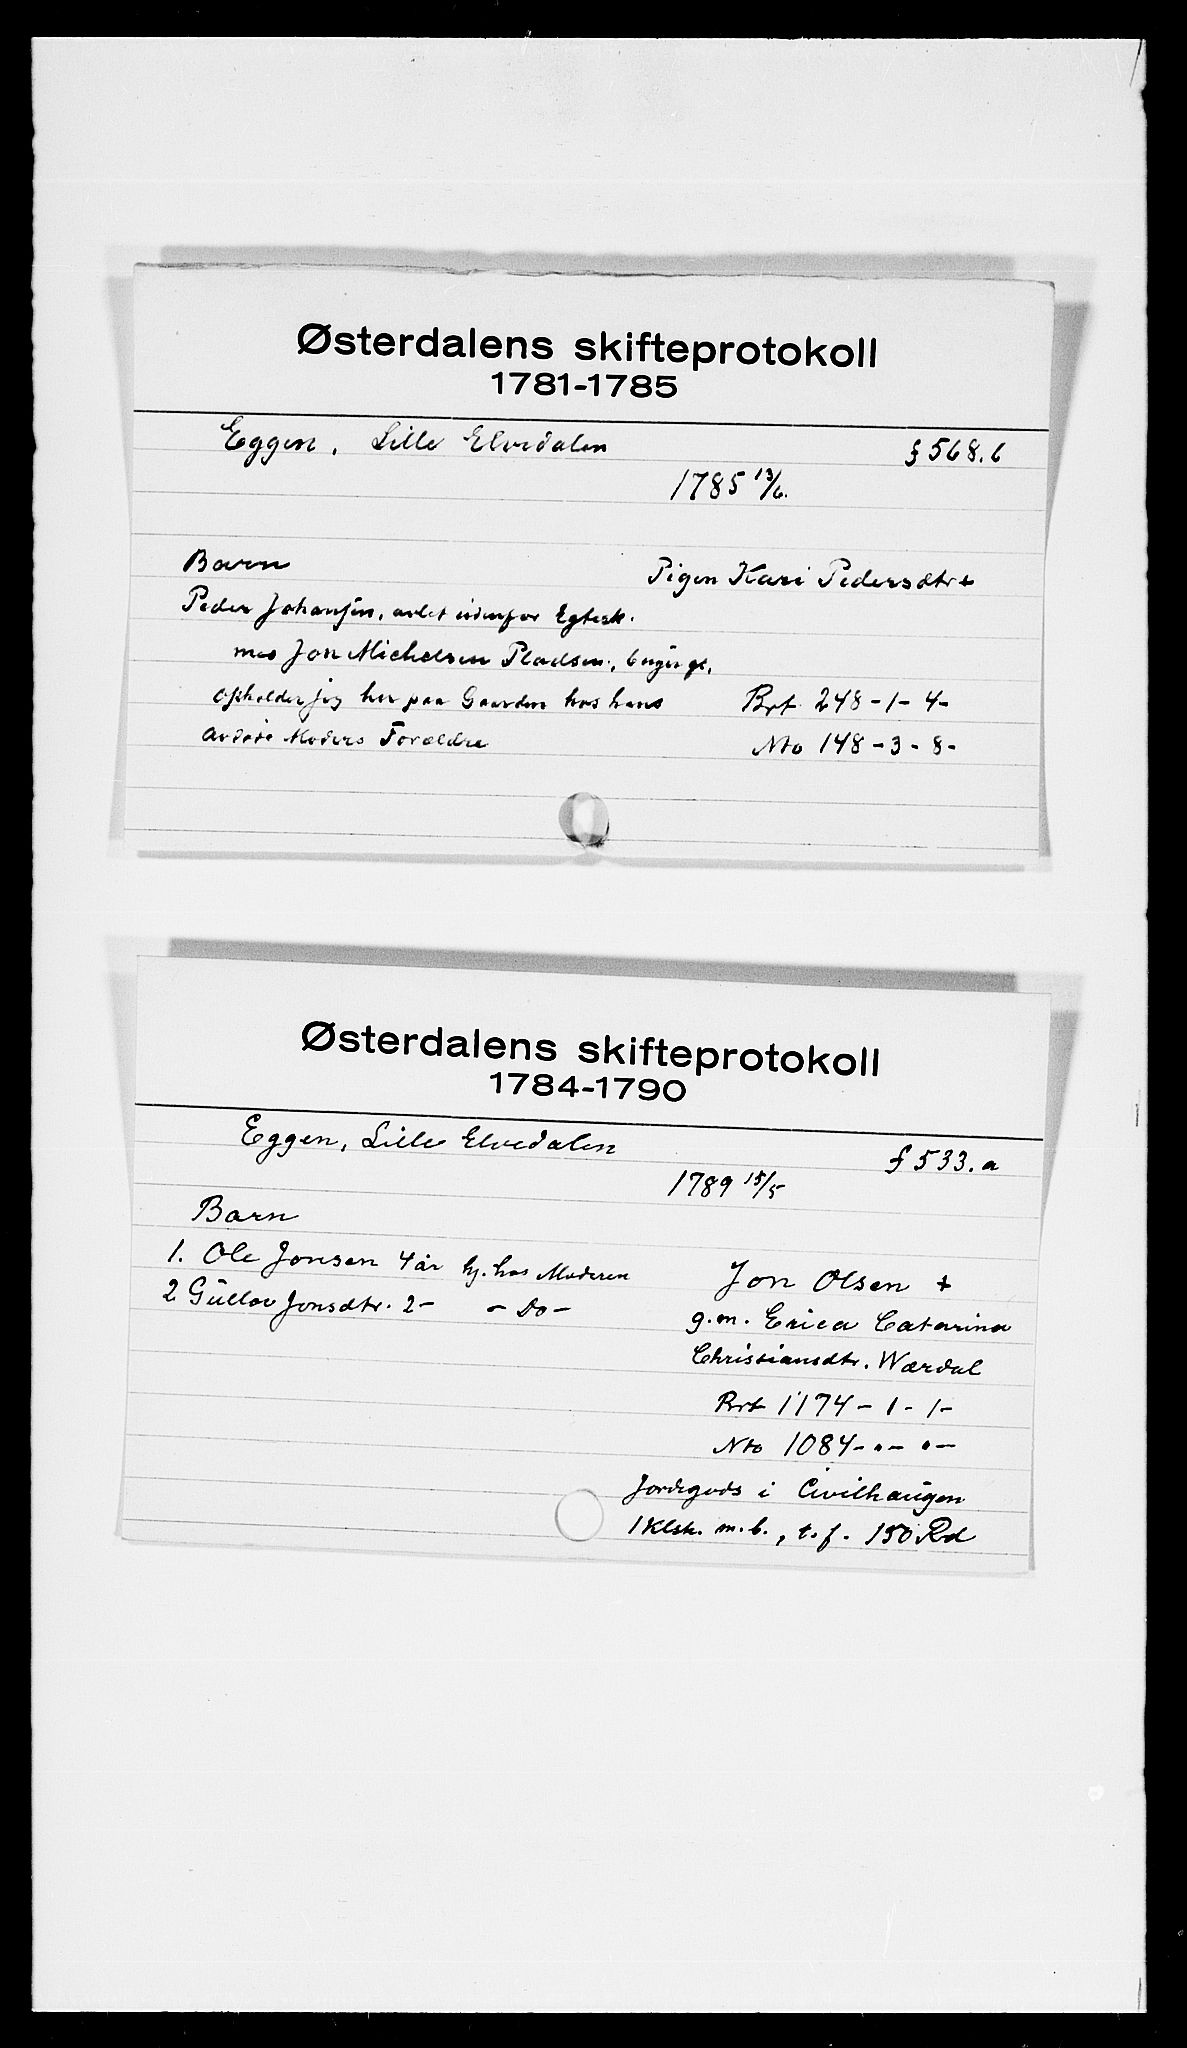 Østerdalens skifteprotokoll
1781-1785
Eggen, Lille Elvedalen
§ 568.b
1785 13/6.
Barn
Pigen Kari Pedersdtr +
Peder Johansen, avlet udenfor Egtesk.
med Jon Michelsen Pladsen,
opholder sig her paa Gaarden hos hans
Brt 248-1-4-
avdøde Moders Forældre
Nto 148-3-8-
Østerdalens skifteprotokoll
1784-1790
Eggen, Lille Elvedalen
f 533.a
1789 15/5
Barn
1. Ole Jonsen 4 år hj. hos Moderen
Jon Olsen +
2 Gulloe Jonsdtr. 2- - Do -
g.m. Erica Catarina
Christiansdtr. Wærdal
Brt 1174-1-1-
Nto 1084-"-"-
Jordegods i Civilhaugen
1 Klsk. m.b., t.f. 150 Rd